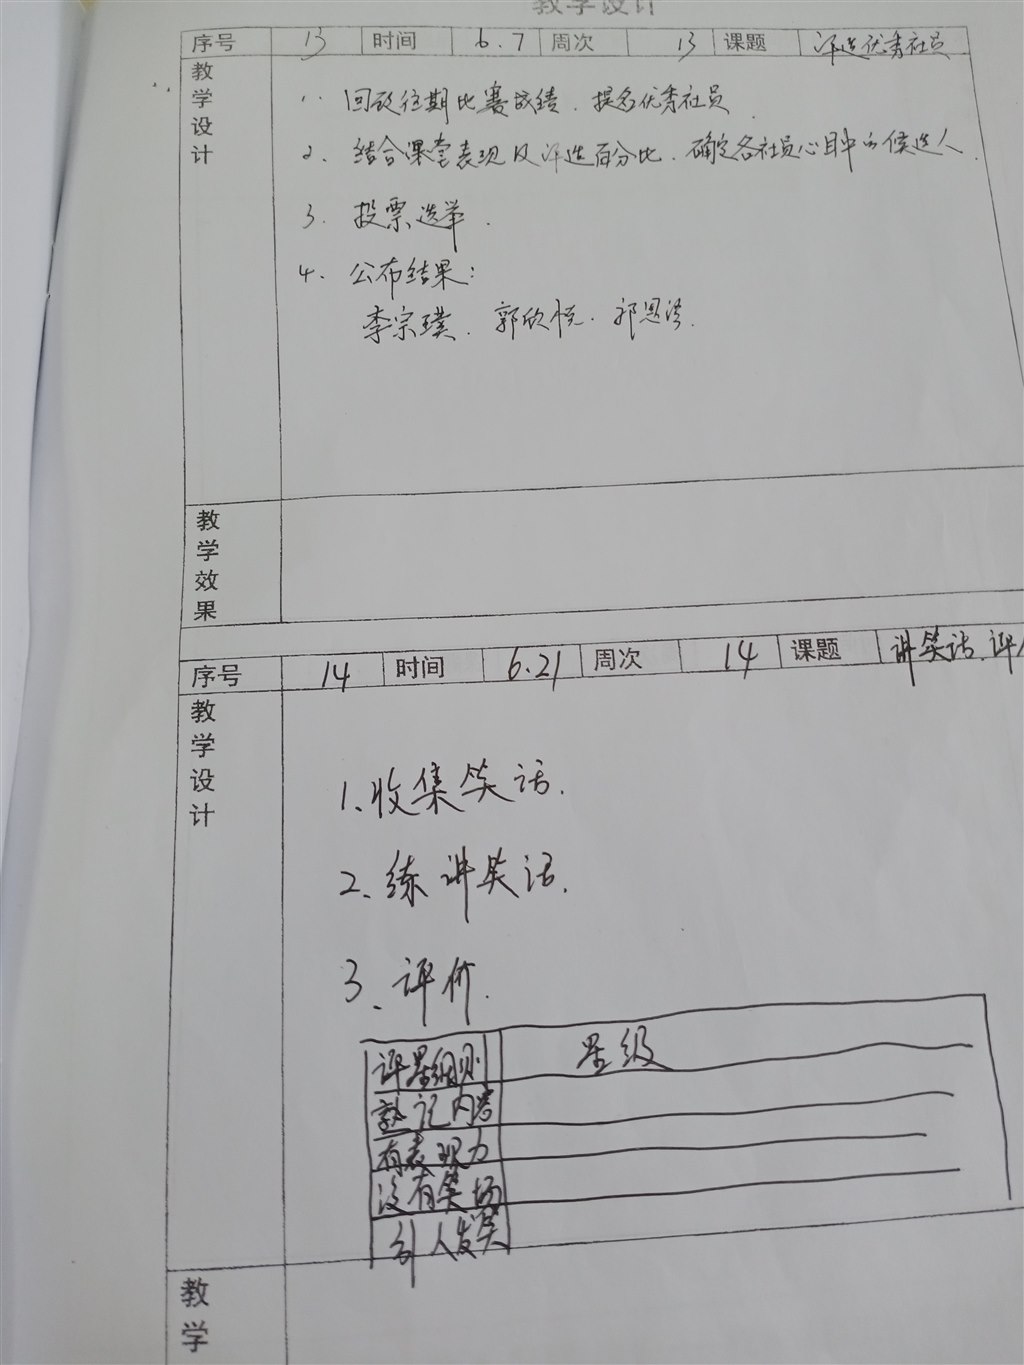 教学设计
序号 13 时间 6.7 周次 13 课题 评选优秀社员
教学设计
1. 回顾往期比赛成绩. 提名优秀社员
2. 结合课堂表现及评选百分比. 确定各社员心目中的候选人.
3. 投票选举.
4. 公布结果:
李宗璞. 郭欣悦. 祁恩
教学效果
序号 14 时间 6.21 周次 14 课题 讲笑话.评
教学设计
1、收集笑话.
2、练讲笑话.
3、评价.
评星细则 星级
熟记内容
有表现力
没有笑场
引人发笑
教学